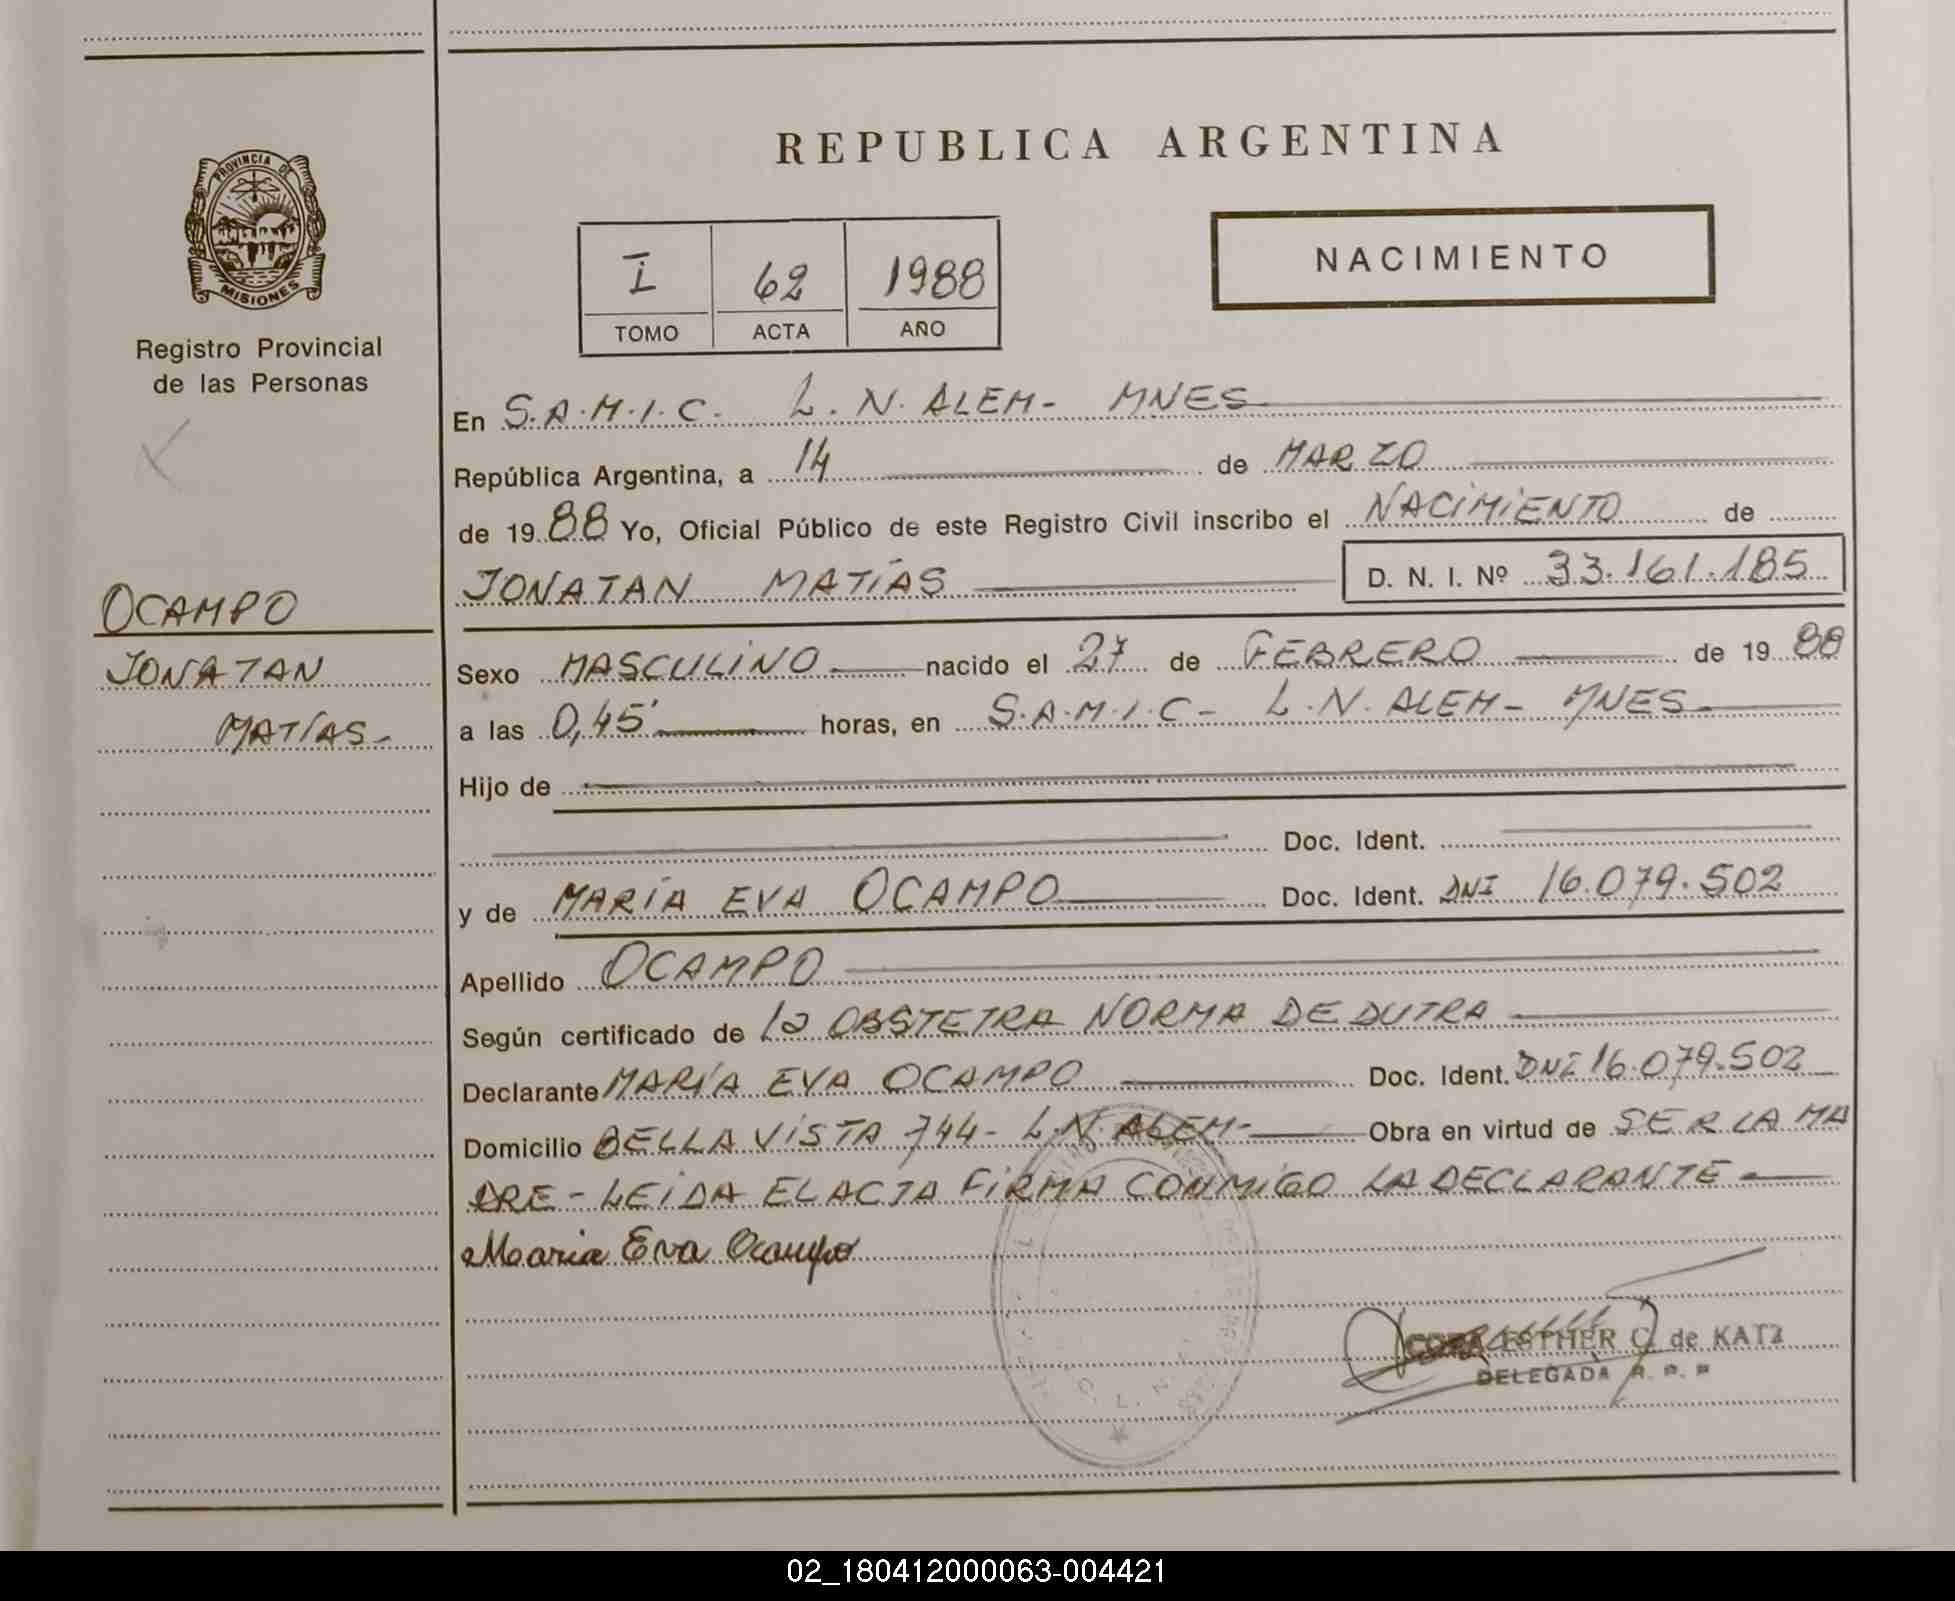 REPUBLICA ARGENTINA
PROVINCIA DE
MISIONES
Registro Provincial
de las Personas
I 62 1988
TOMO ACTA AÑO
NACIMIENTO
En S.A.M.I.C. L.N. ALEM- MNES
República Argentina, a 14 de MARZO
de 19 88 Yo, Oficial Público de este Registro Civil inscribo el NACIMIENTO de
JONATAN MATÍAS D. N. I. Nº 33.161.185
OCAMPO
JONATAN
MATÍAS-
Sexo MASCULINO nacido el 27 de FEBRERO de 19 88
a las 0,45' horas, en S.A.M.I.C- L.N. ALEM- MNES
Hijo de
Doc. Ident.
y de MARÍA EVA OCAMPO Doc. Ident. DNI 16.079.502
Apellido OCAMPO
Según certificado de la OBSTETRA NORMA DE DUTRA
Declarante MARÍA EVA OCAMPO Doc. Ident. DNI 16.079.502
Domicilio BELLA VISTA 744- L.N. ALEM- Obra en virtud de SER LA MA
DRE - LEIDA EL ACTA FIRMA CONMIGO LA DECLARANTE
Maria Eva Ocampo
ESTHER C. de KATZ
DELEGADA R. P. P
02_180412000063-004421